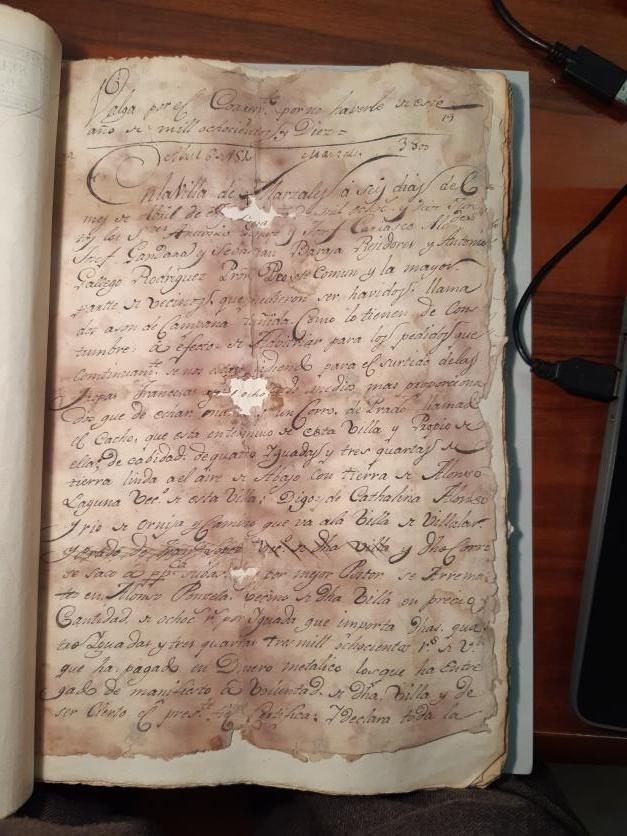 Valga por el Corrien.te por no haverle de este
año de mill ochocientos y Diez =
Abril 6 3800
En la Villa de Marzales a seis dias del
mes de Abril de mill ocho.s y Diez
los S.res Antonio y Josef Alcaldes
Josef Gandara y Sevastian Baraja Rejidores y Antonio
Gallego Rodriguez Pror. de Comun y la mayor
partte de vecinos que pudieron ser havidos, llama
dos a son de Campana tañida, Como lo tienen de Cos
tumbre: a efecto de para los pedidos que
Continuam.te se nos estan pidiendo para el surtido de las
Tropas Francesas y medio mas proporciona
dos que de echar un Corro de Prado llamad
el Cacho, que esta en termino de esta Villa y Propio de
ella, de cabidad de quatro Yguadas y tres quartas de
tierra linda a el aire de Abajo con tierra de Alonso
Laguna Vec.o de esta Villa: Digo, de Cathalina Alonso
Y rio de Ornija y Camino que va a la Villa de Villalar.
Vec.o de dha Villa y dho Corro
se saco a por mejor Postor se Arrema
to en Alonso vecino de dha Villa en precio y
Cantidad de ocho.s r.s por Yguada que importa dhas qua
tro Yguadas y tres quartas tres mill ochocientos r.s de v.n
que ha pagado en Dinero metalico los que ha entre
gado de manifiesto a Voluntad de dha Villa y de
ser Cierto el pres.te Certifica: Y declara toda la